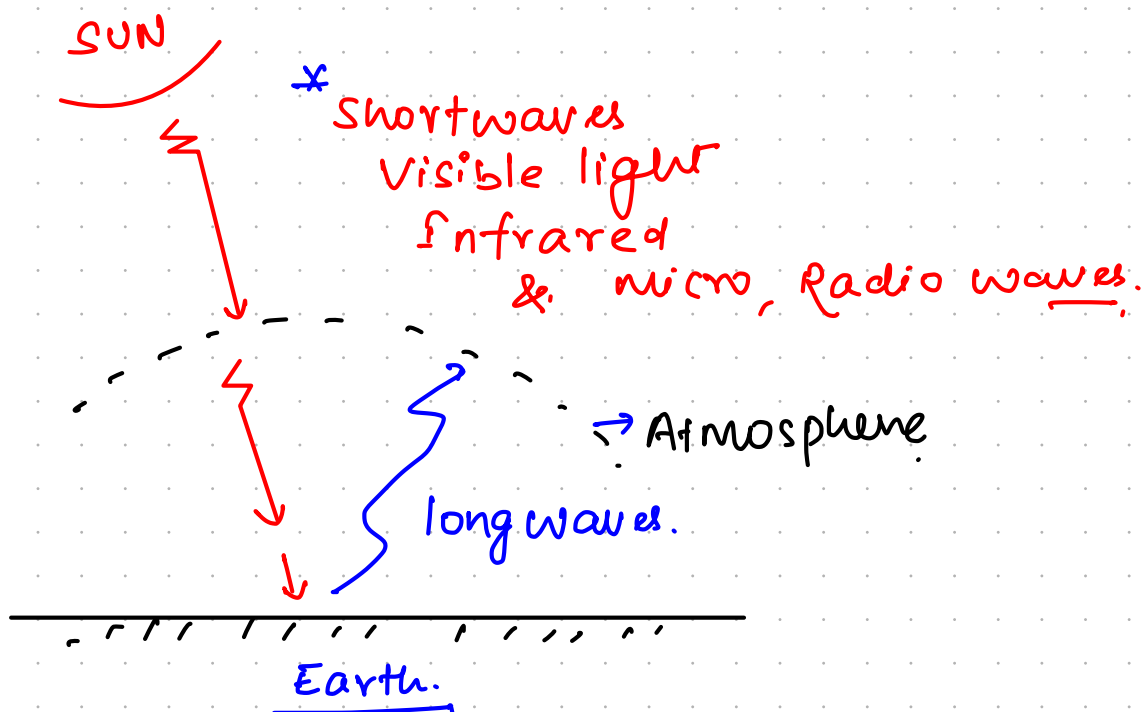 SUN
*
Shortwaves
Visible light
Infrared
& micro, Radio waves.
→ Atmosphere
longwaves.
Earth.